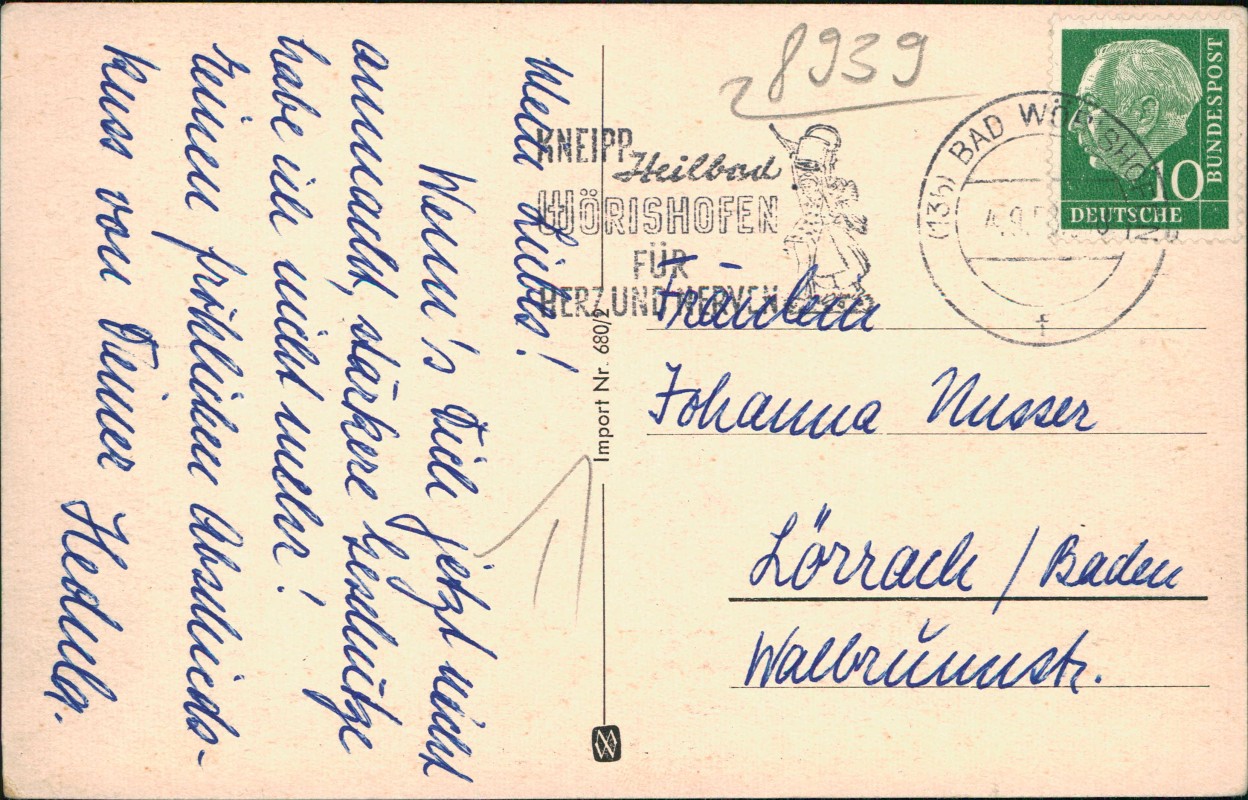 Mein Liebes!
Wenn's Dich jetzt nicht
anmacht, stärkere Geschütze
habe ich nicht mehr!
Einen fröhlichen Abschieds-
kuss von Deiner Hedwig.
8939
KNEIPP
Heilbad
WÖRISHOFEN
FÜR
HERZ UND NERVEN
(13b) BAD WÖRISHOFEN
4.9.58
f
DEUTSCHE
BUNDESPOST
10
Import Nr. 680/2
Fräulein
Johanna Nusser
Lörrach / Baden
Walbrunnstr.